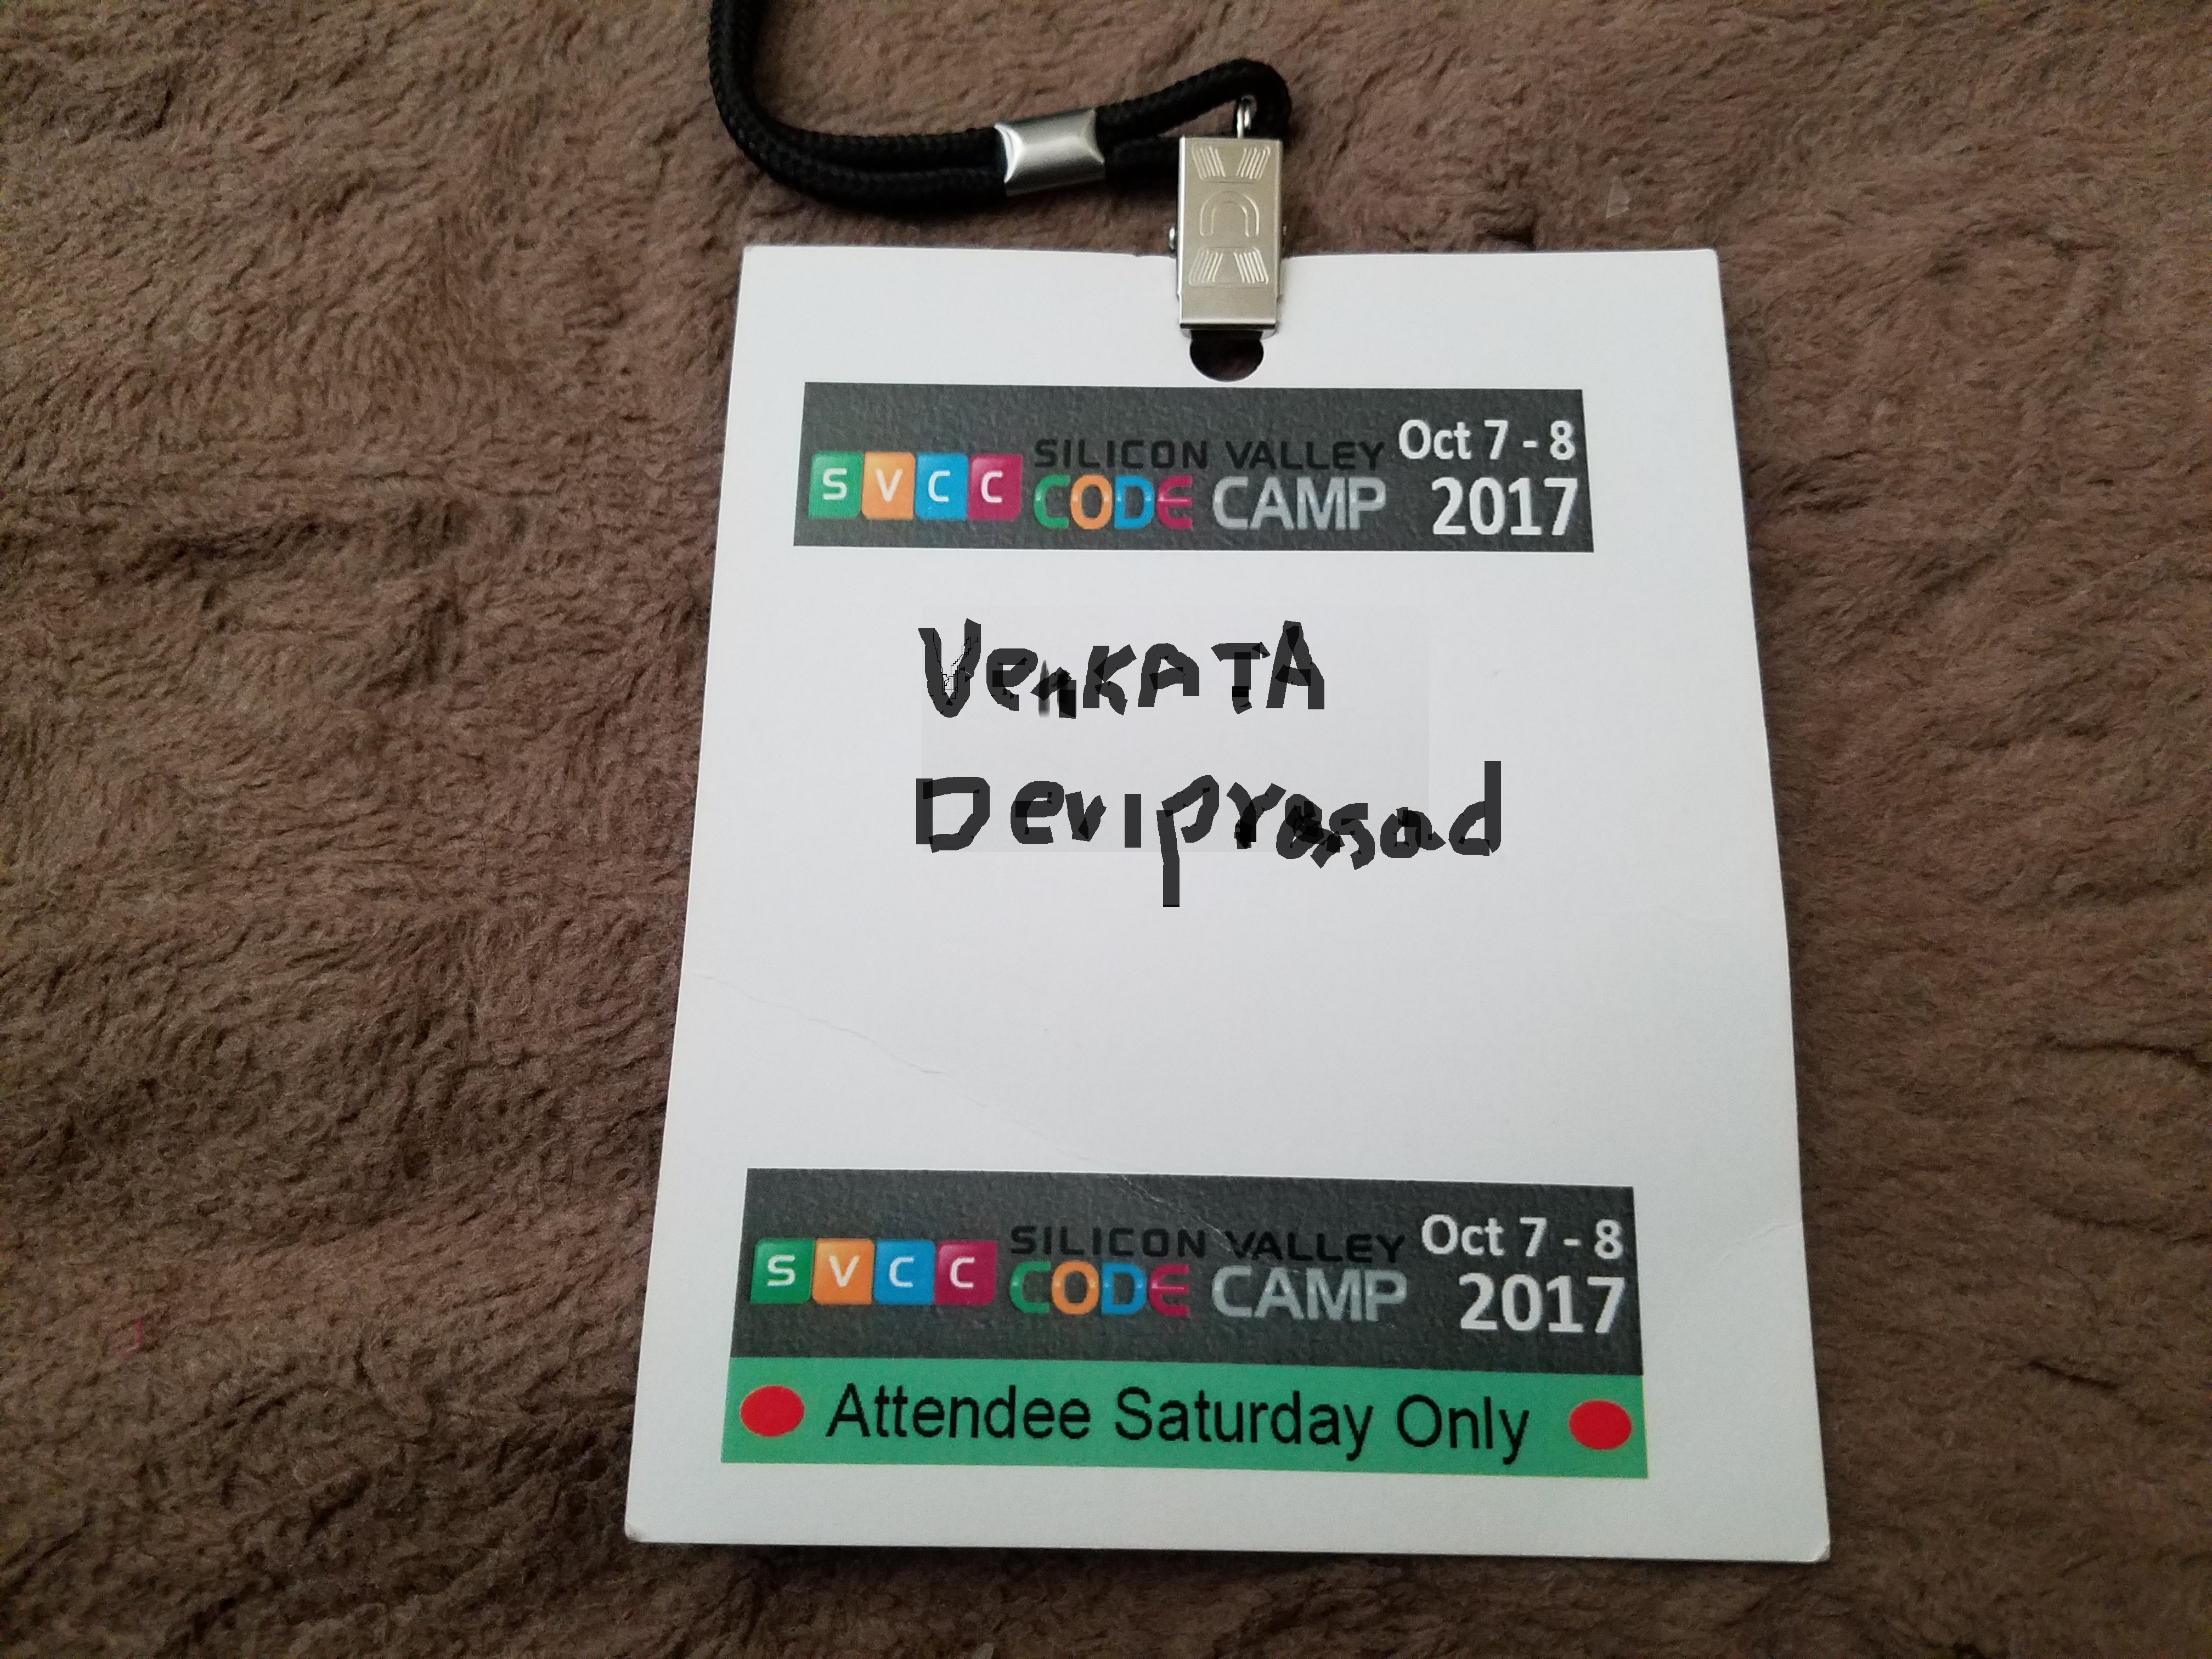 SVCC SILICON VALLEY CODE CAMP Oct 7 - 8 2017
VenKATA
Deviprasad
SVCC SILICON VALLEY CODE CAMP Oct 7 - 8 2017
Attendee Saturday Only